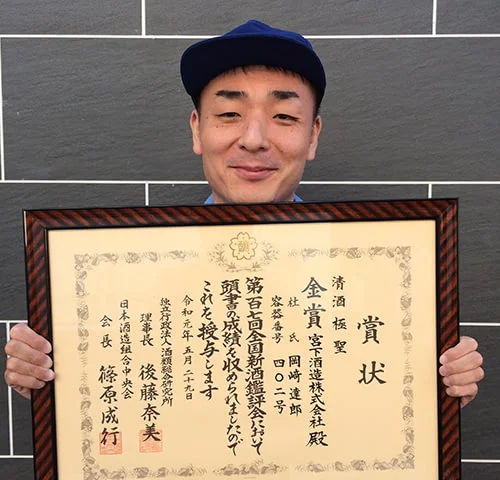 賞状
清酒 極聖
金賞 宮下酒造株式会社 殿
杜氏 岡崎達郎
容器番号 四〇二号
第百七回全国新酒鑑評会において
頭書の成績を収められましたので
これを授与します
令和元年五月二十九日
独立行政法人酒類総合研究所
理事長 後藤奈美
日本酒造組合中央会
会長 篠原成行